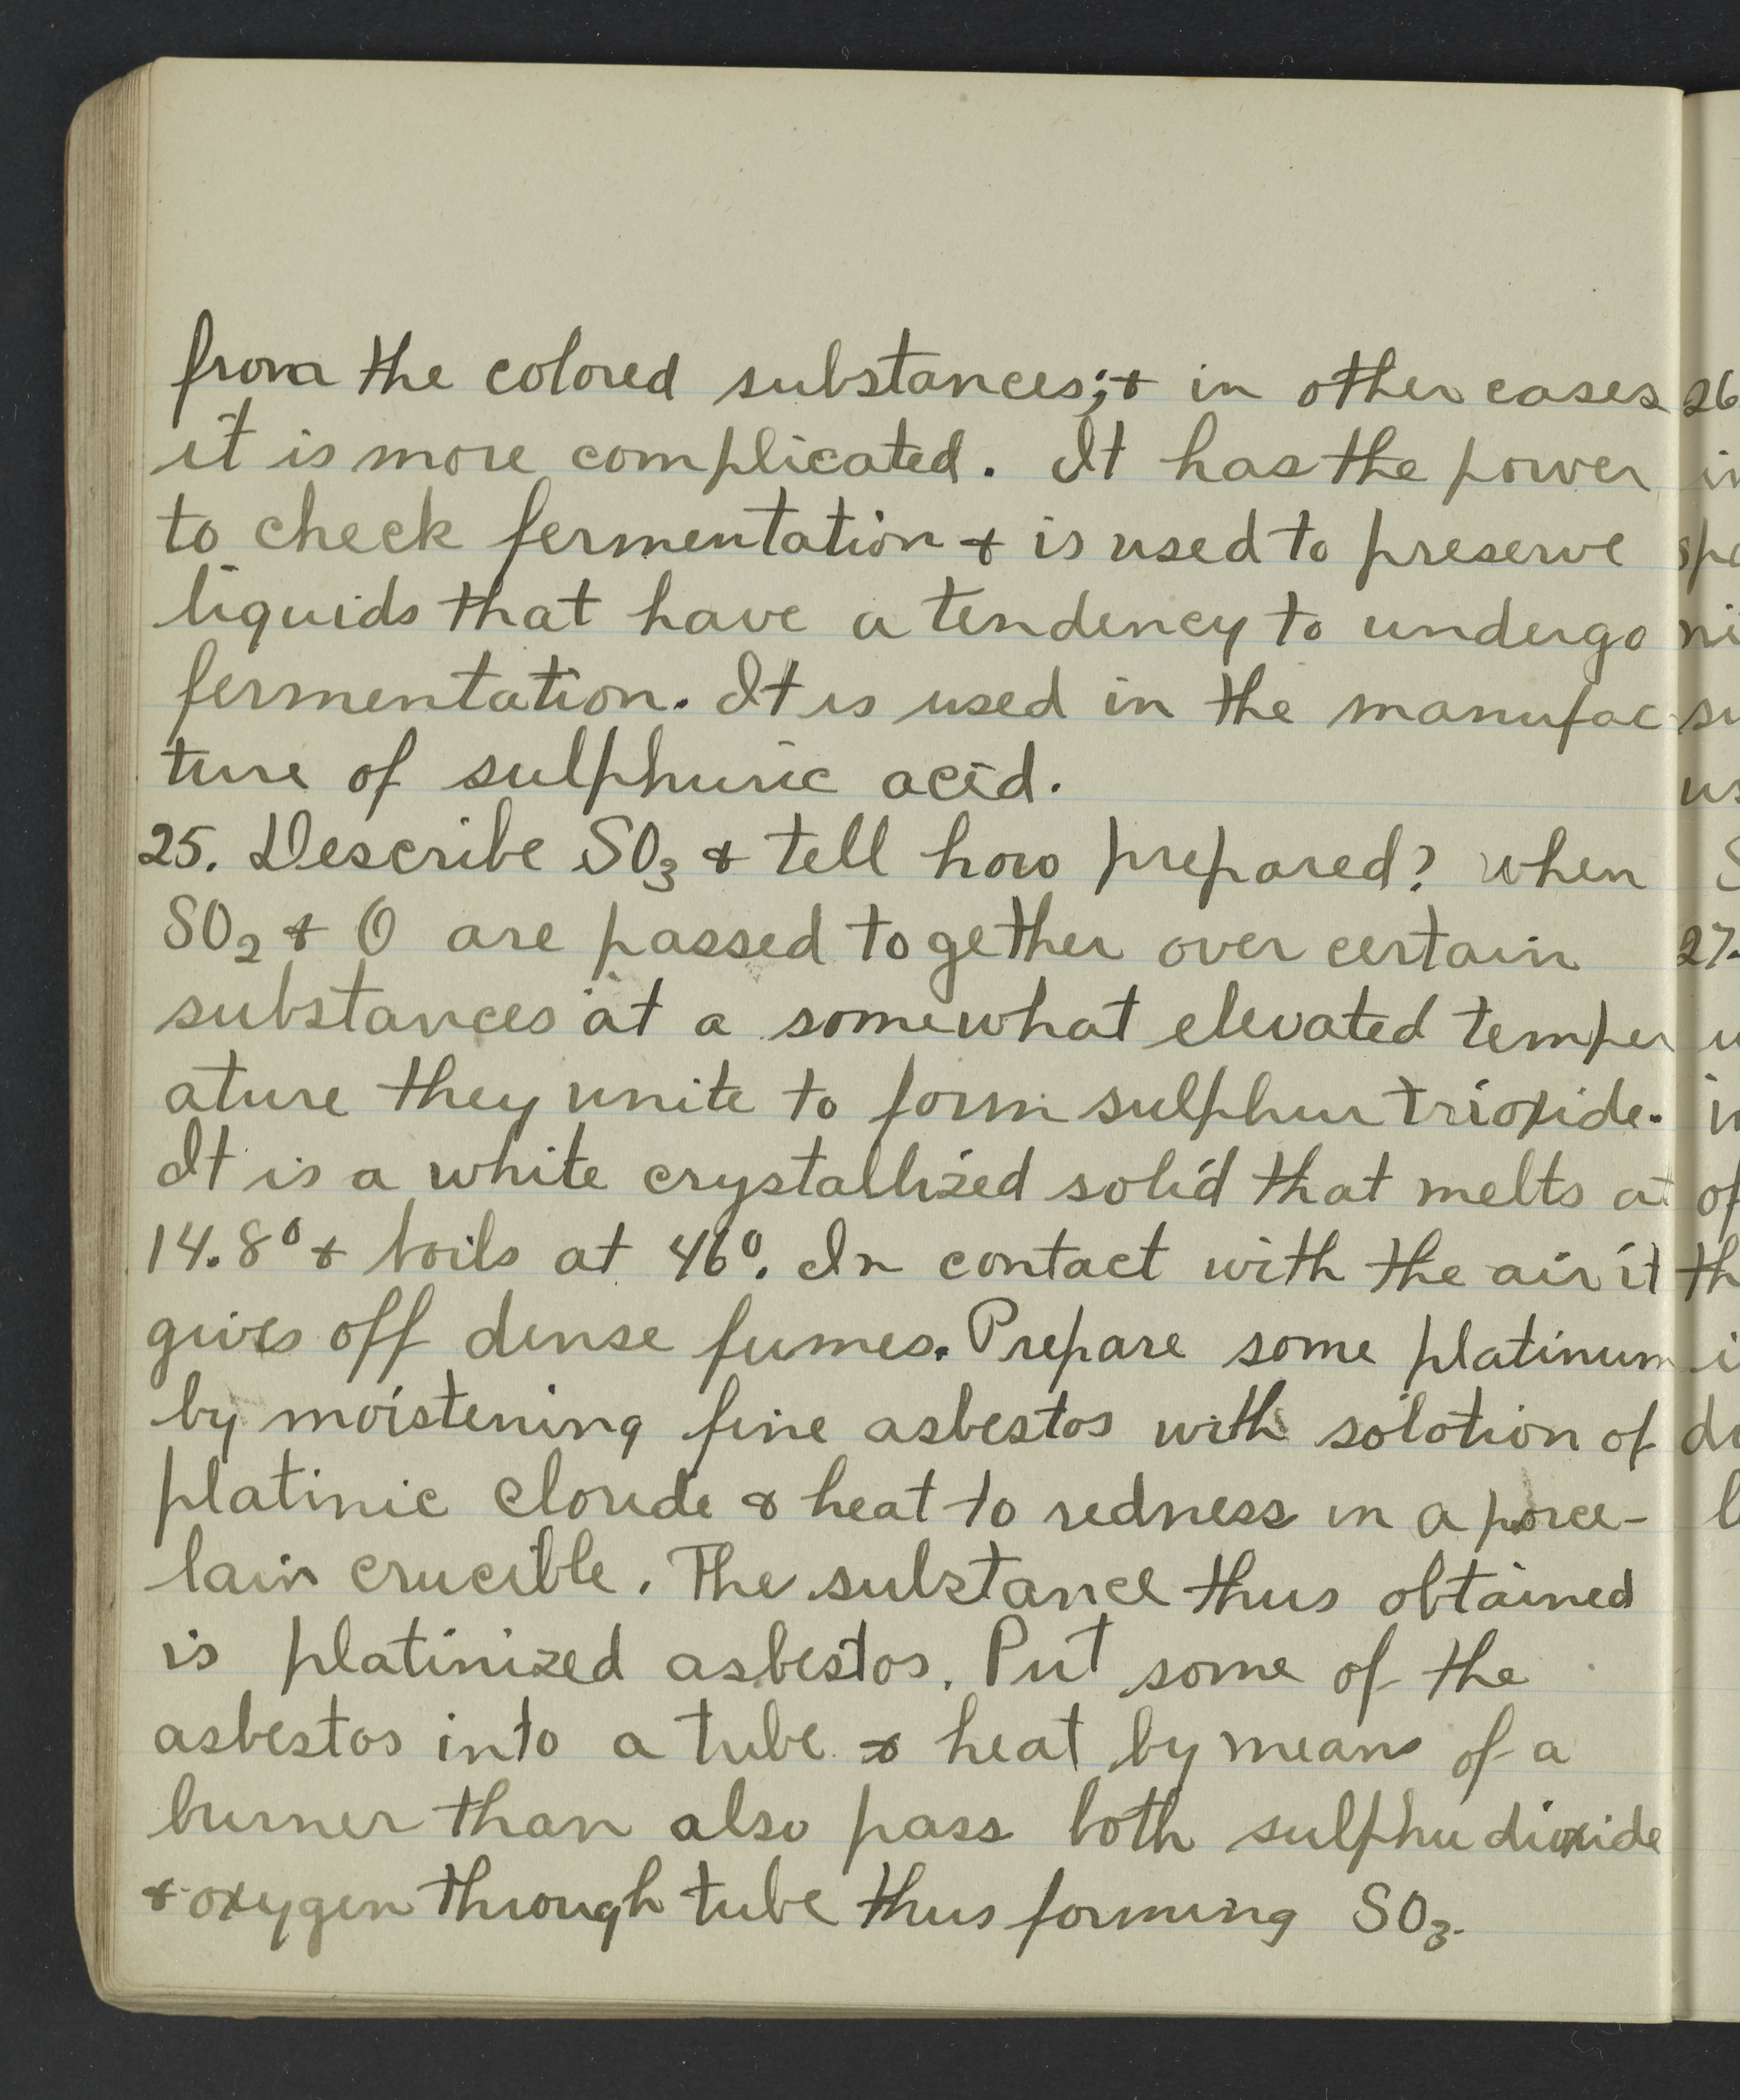 from the colored substances; & in other cases
it is more complicated. It has the power
to check fermentation & is used to preserve
liquids that have a tendency to undergo
fermentation. It is used in the manufac
ture of sulphuric acid.
25. Describe SO₃ & tell how prepared? when
SO₂ & O are passed together over certain
substances at a somewhat elevated temper
ature they unite to form sulphur trioxide.
It is a white crystallized solid that melts at
14.8° & boils at 46°. In contact with the air it
gives off dense fumes. Prepare some platinum
by moistening fine asbestos with solotion of
platinic cloride & heat to redness in a porce-
lain crucible. The substance thus obtained
is platinized asbestos. Put some of the
asbestos into a tube & heat by means of a
burner than also pass both sulphu dioxide
& oxygen through tube thus forming SO₃.
26
27.